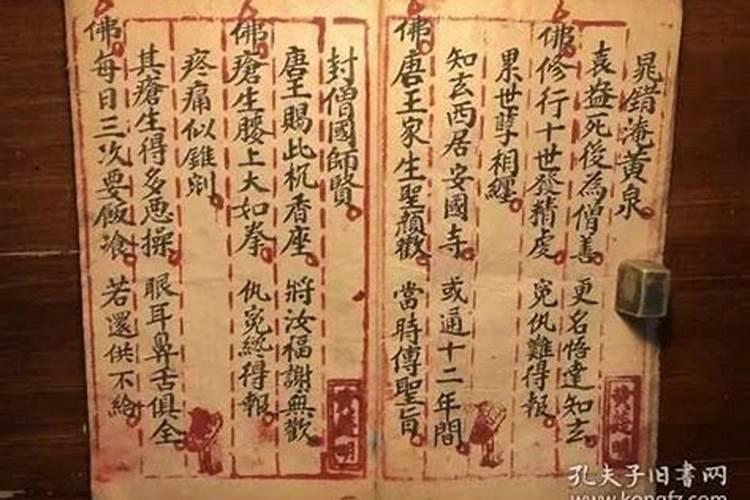 晁錯淹黃泉
袁盎死後為僧善 更名悟達知玄
佛修行十世發精虔 冤仇難得報
累世孽相纏
知玄西居安國寺 或通十二年間
佛唐王家生聖顏歡 當時傳聖旨
封僧國師賢
唐王賜此杌香座 將汝福謝無歡
佛瘡生腰上大如拳 仇冤終得報
疼痛似錐剜
其瘡生得多惡操 眼耳鼻舌俱全
佛每日三次要飯飡 若還供不給
孔夫子旧书网